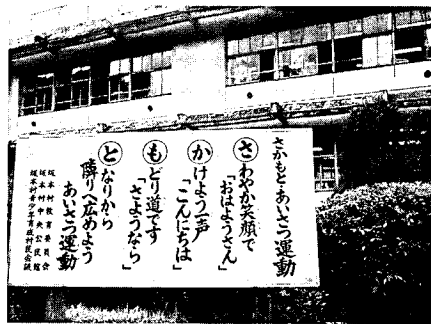 さかもと・あいさつ運動
さわやか笑顔で
「おはようさん」
かけよう一声
「こんにちは」
もどり道です
「さようなら」
となりから
隣りへ広めよう
あいさつ運動
坂本村教育委員会
坂本村中央公民館
坂本村青少年育成村民会議